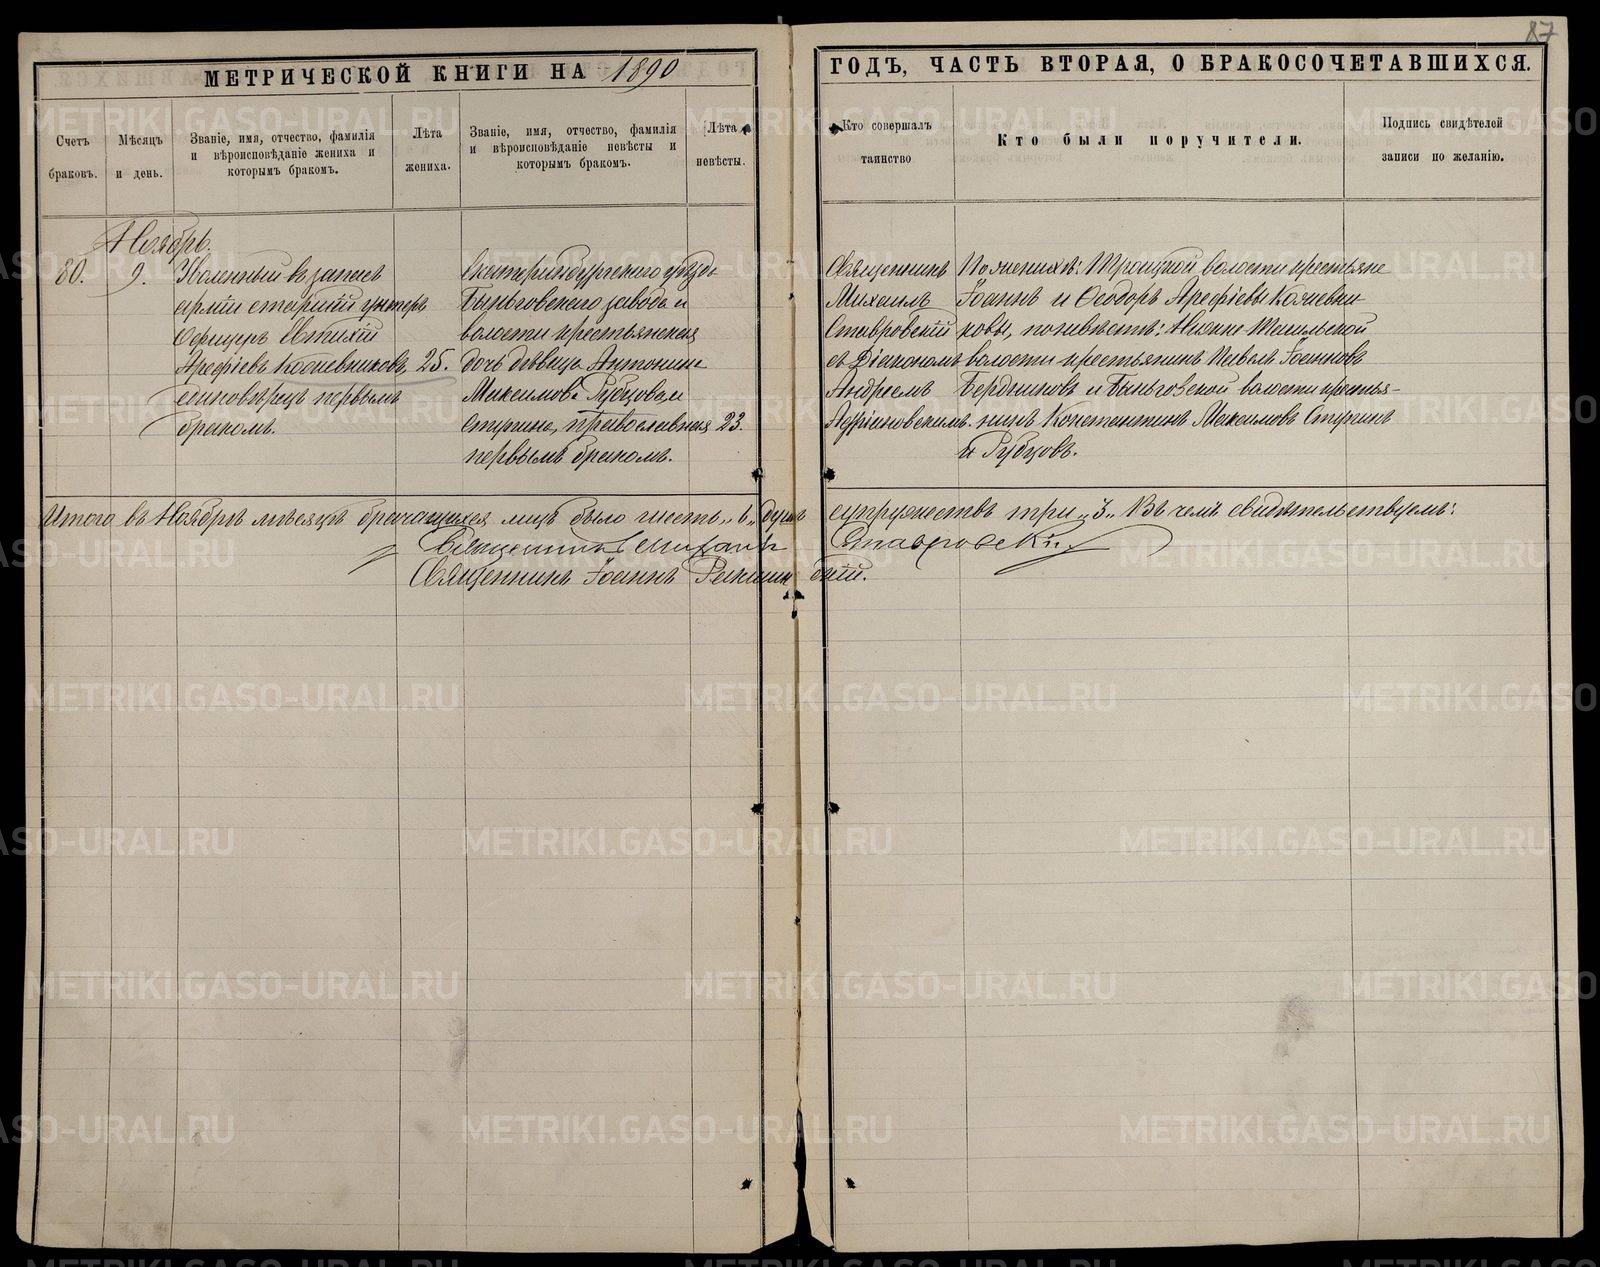 87
МЕТРИЧЕСКОЙ КНИГИ НА 1890
ГОДЪ, ЧАСТЬ ВТОРАЯ, О БРАКОСОЧЕТАВШИХСЯ.
Счетъ браковъ.
Мѣсяцъ и день.
Званіе, имя, отчество, фамилія
и вѣроисповѣданіе жениха и
которымъ бракомъ.
Лѣта
жениха.
Званіе, имя, отчество, фамилія
и вѣроисповѣданіе невѣсты и
которымъ бракомъ.
Лѣта
невѣсты.
Кто совершалъ
таинство
Кто были поручители.
Подпись свидѣтелей
записи по желанію.
Ноябрь.
30.
9.
Уволенный въ запасъ
арміи старшій унтеръ
Офицеръ Евтихій
Арефіевъ Кожевниковъ,
единовѣрецъ первымъ
бракомъ.
25.
Екатеринбургскаго уѣзда
Быньговскаго завода и
волости крестьянская
дочь дѣвица Антонина
Максимова Рубцова и
Стуинa, Православная
первымъ бракомъ.
23.
Священникъ
Михаилъ
Ставровскій
съ Діакономъ
Андреемъ
Адріановскимъ.
По женихѣ: Троицкой волости крестьяне
Іоаннъ и Ѳеодоръ Арефіевы Кожевни
ковы, по невѣстѣ: Нижне Тагильской
волости крестьянинъ Павелъ Іоанновъ
Бердниковъ и Быньговской волости крестья-
нинъ Константинъ Максимовъ
и Рубцовъ.
Итого въ Ноябрѣ мѣсяцѣ брачащихся лицъ было шесть „6„ душъ супружествъ три „3„ Въ чемъ свидѣтельствуемъ:
Священникъ Михаилъ Ставровскій
Священникъ Іоаннъ
METRIKI.GASO-URAL.RU